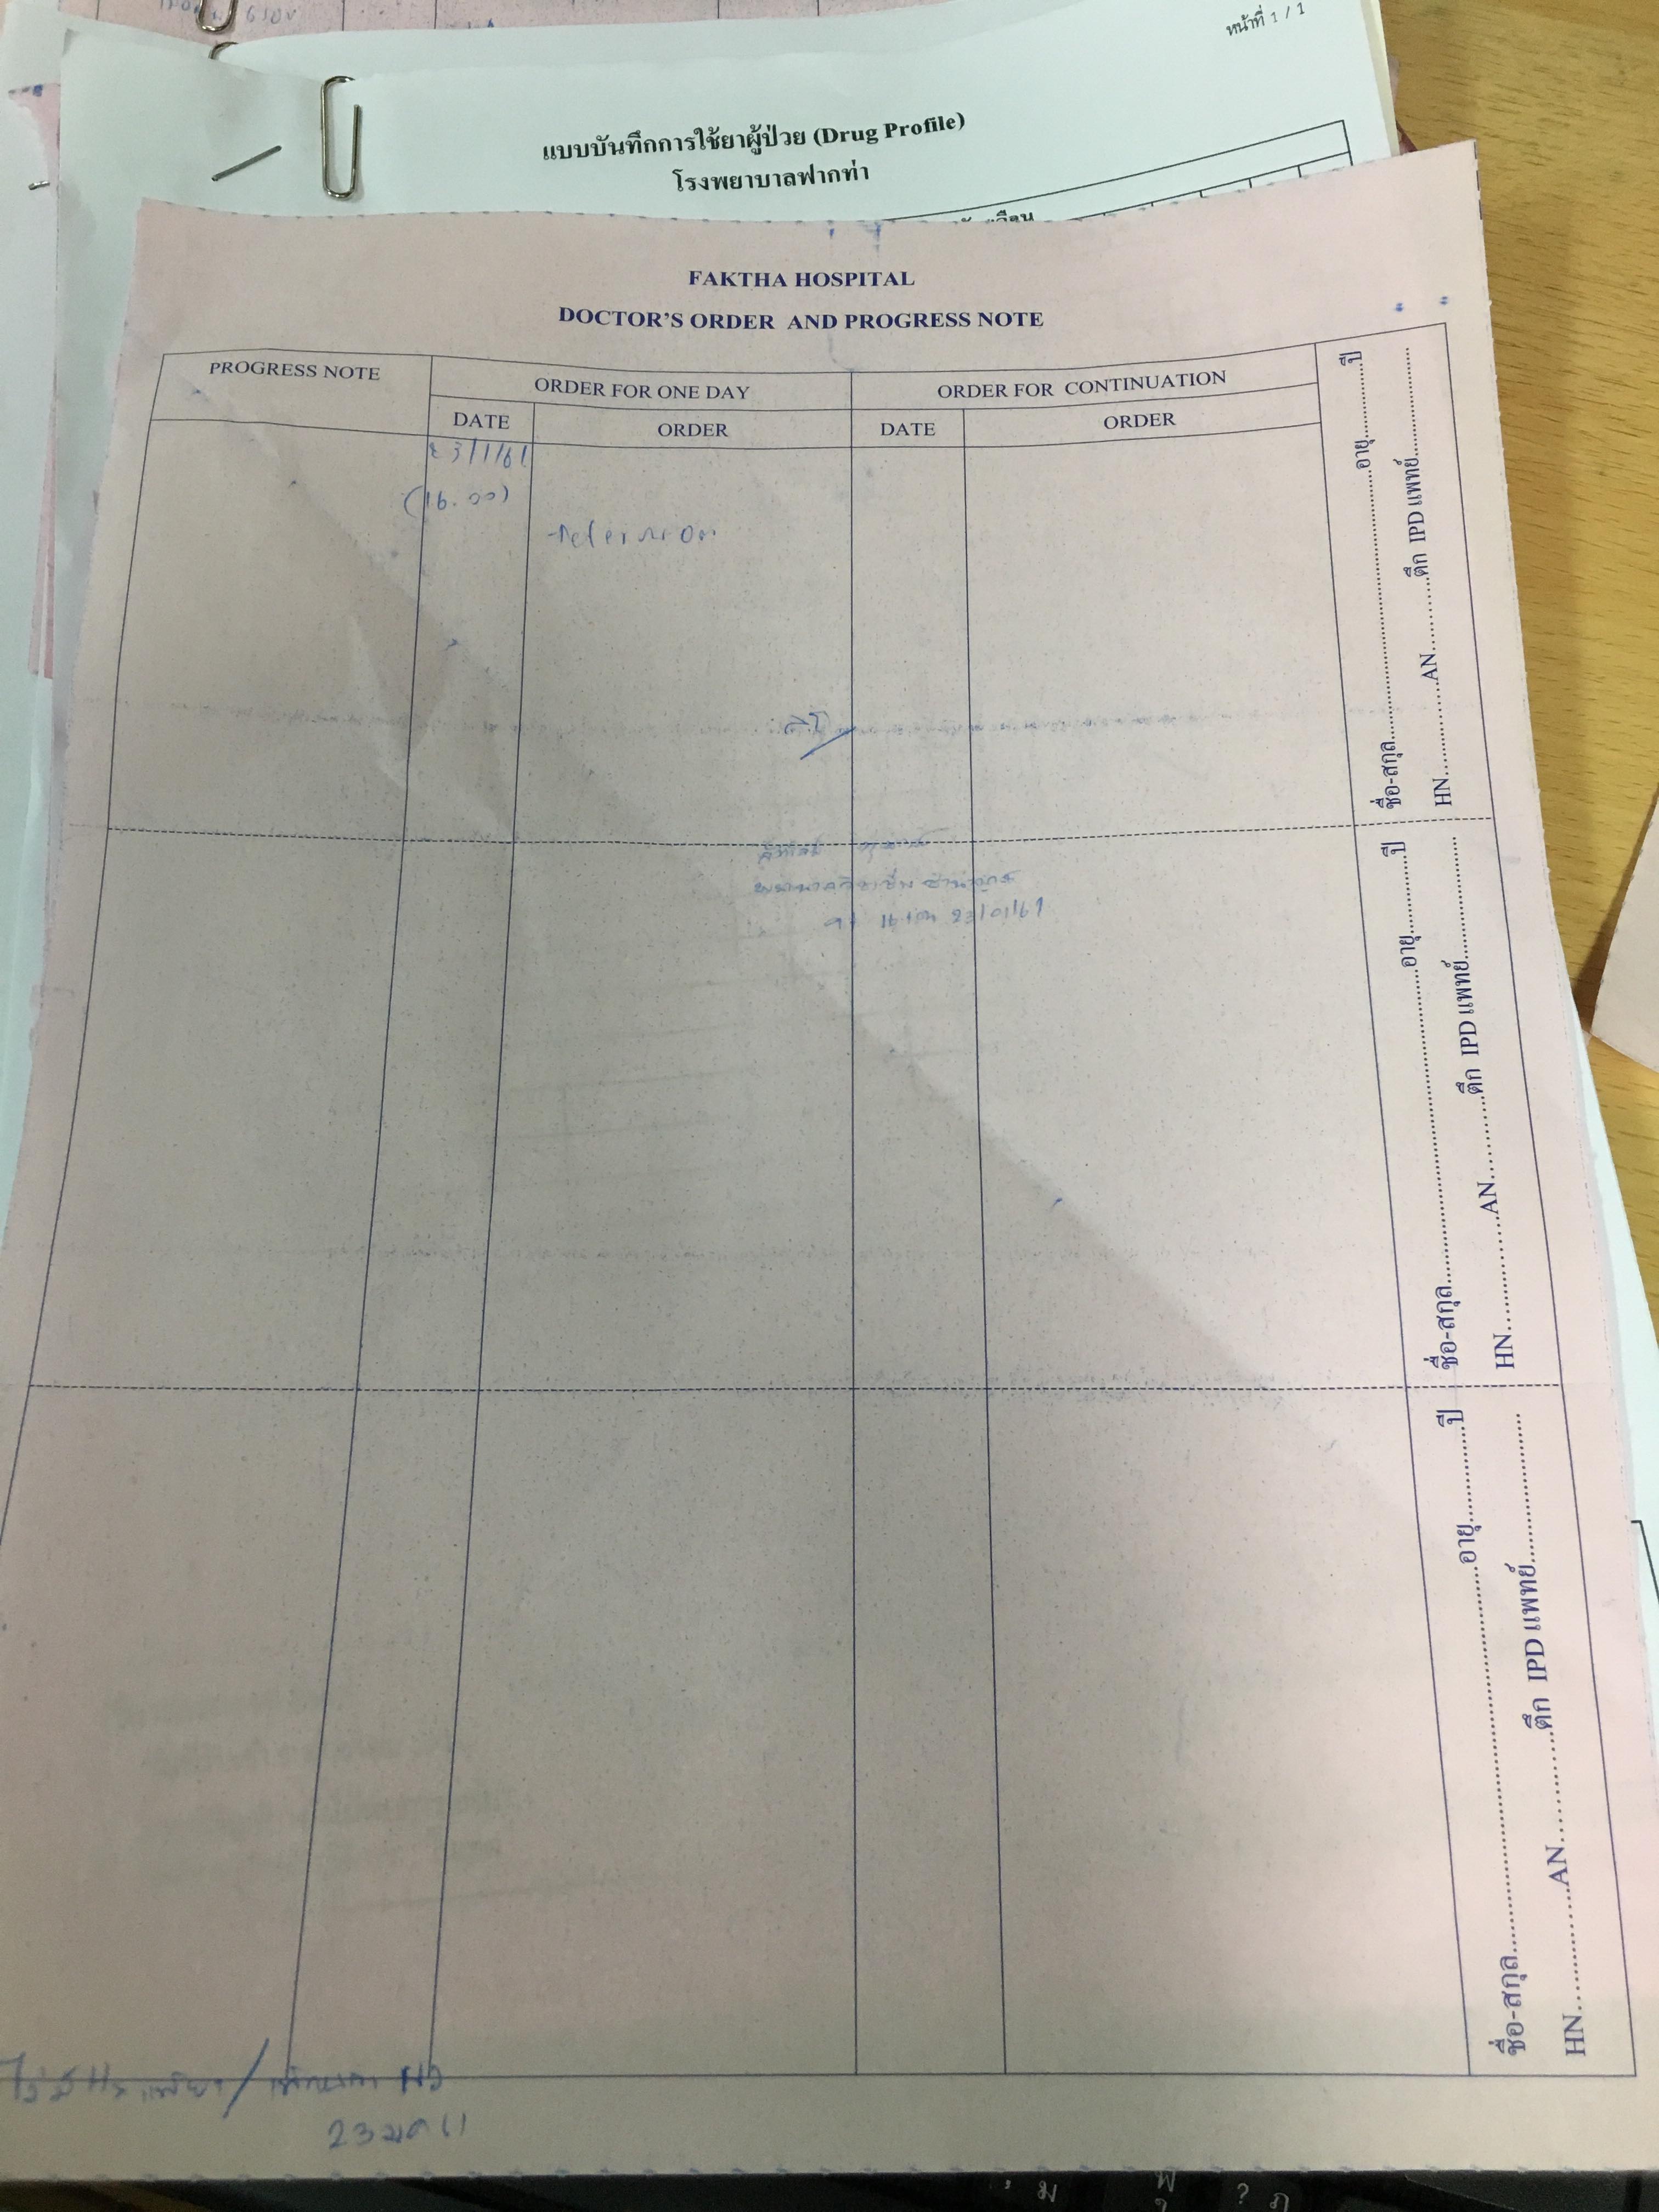 หน้าที่ 1 / 1
แบบบันทึกการใช้ยาผู้ป่วย (Drug Profile)
โรงพยาบาลฟากท่า
FAKTHA HOSPITAL
DOCTOR'S ORDER AND PROGRESS NOTE
PROGRESS NOTE
ORDER FOR ONE DAY
ORDER FOR CONTINUATION
DATE
ORDER
DATE
ORDER
23/1/61
(16.00)
23/01/61
ชื่อ-สกุล..........อายุ..........ปี
HN..........AN..........ตึก IPD แพทย์..........
ชื่อ-สกุล..........อายุ..........ปี
HN..........AN..........ตึก IPD แพทย์..........
ชื่อ-สกุล..........อายุ..........ปี
HN..........AN..........ตึก IPD แพทย์..........
23 มค 61